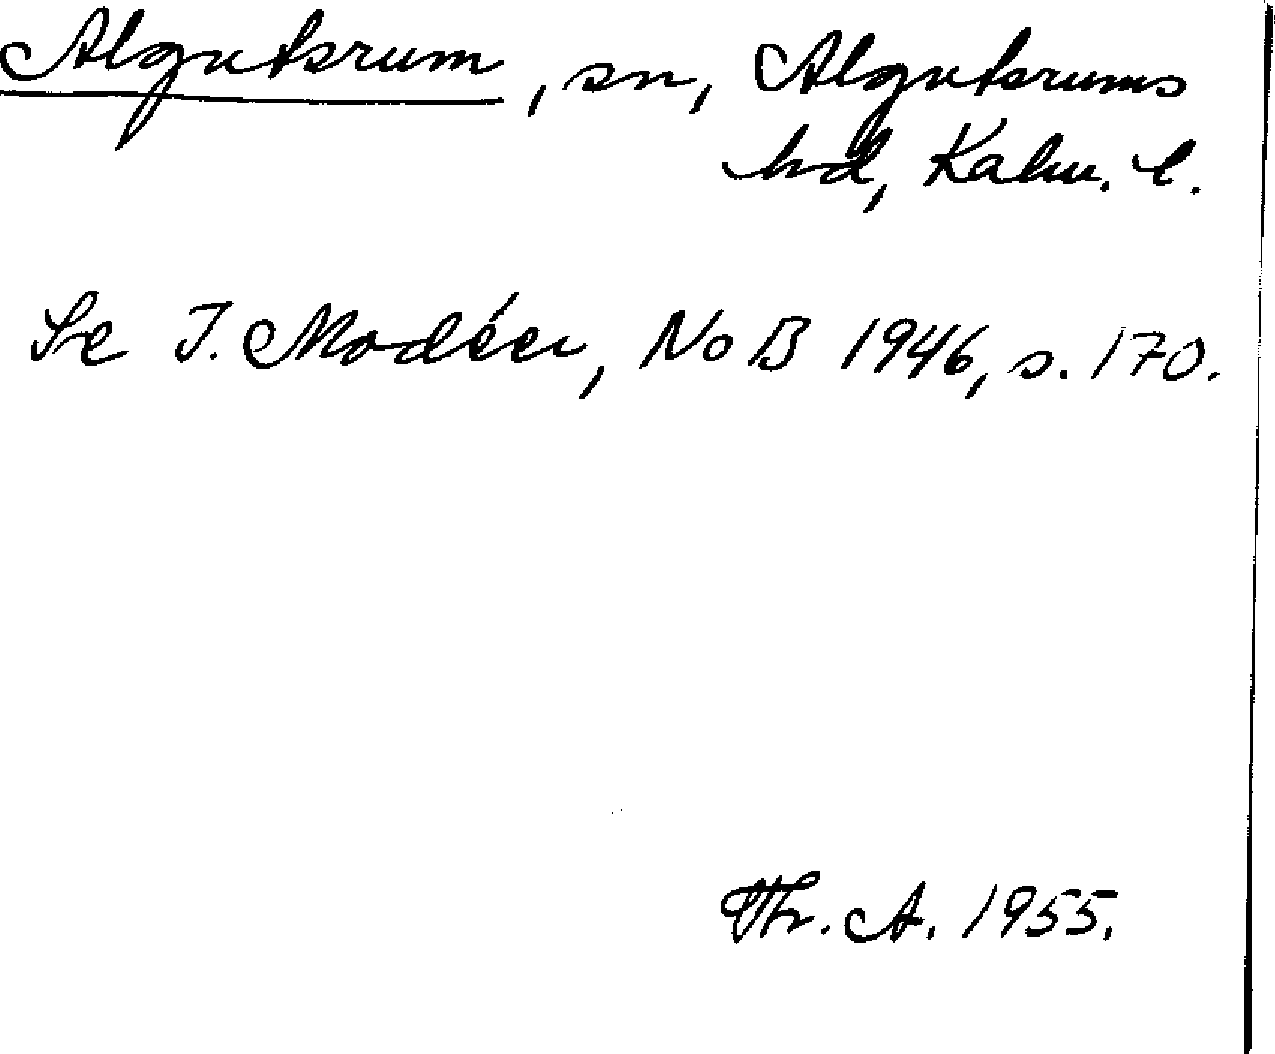 Algutsrum, sn, Algutsrums
hd, Kalm. l.
Se I. Modéer, NoB 1946, s. 170.
Th. A. 1955.